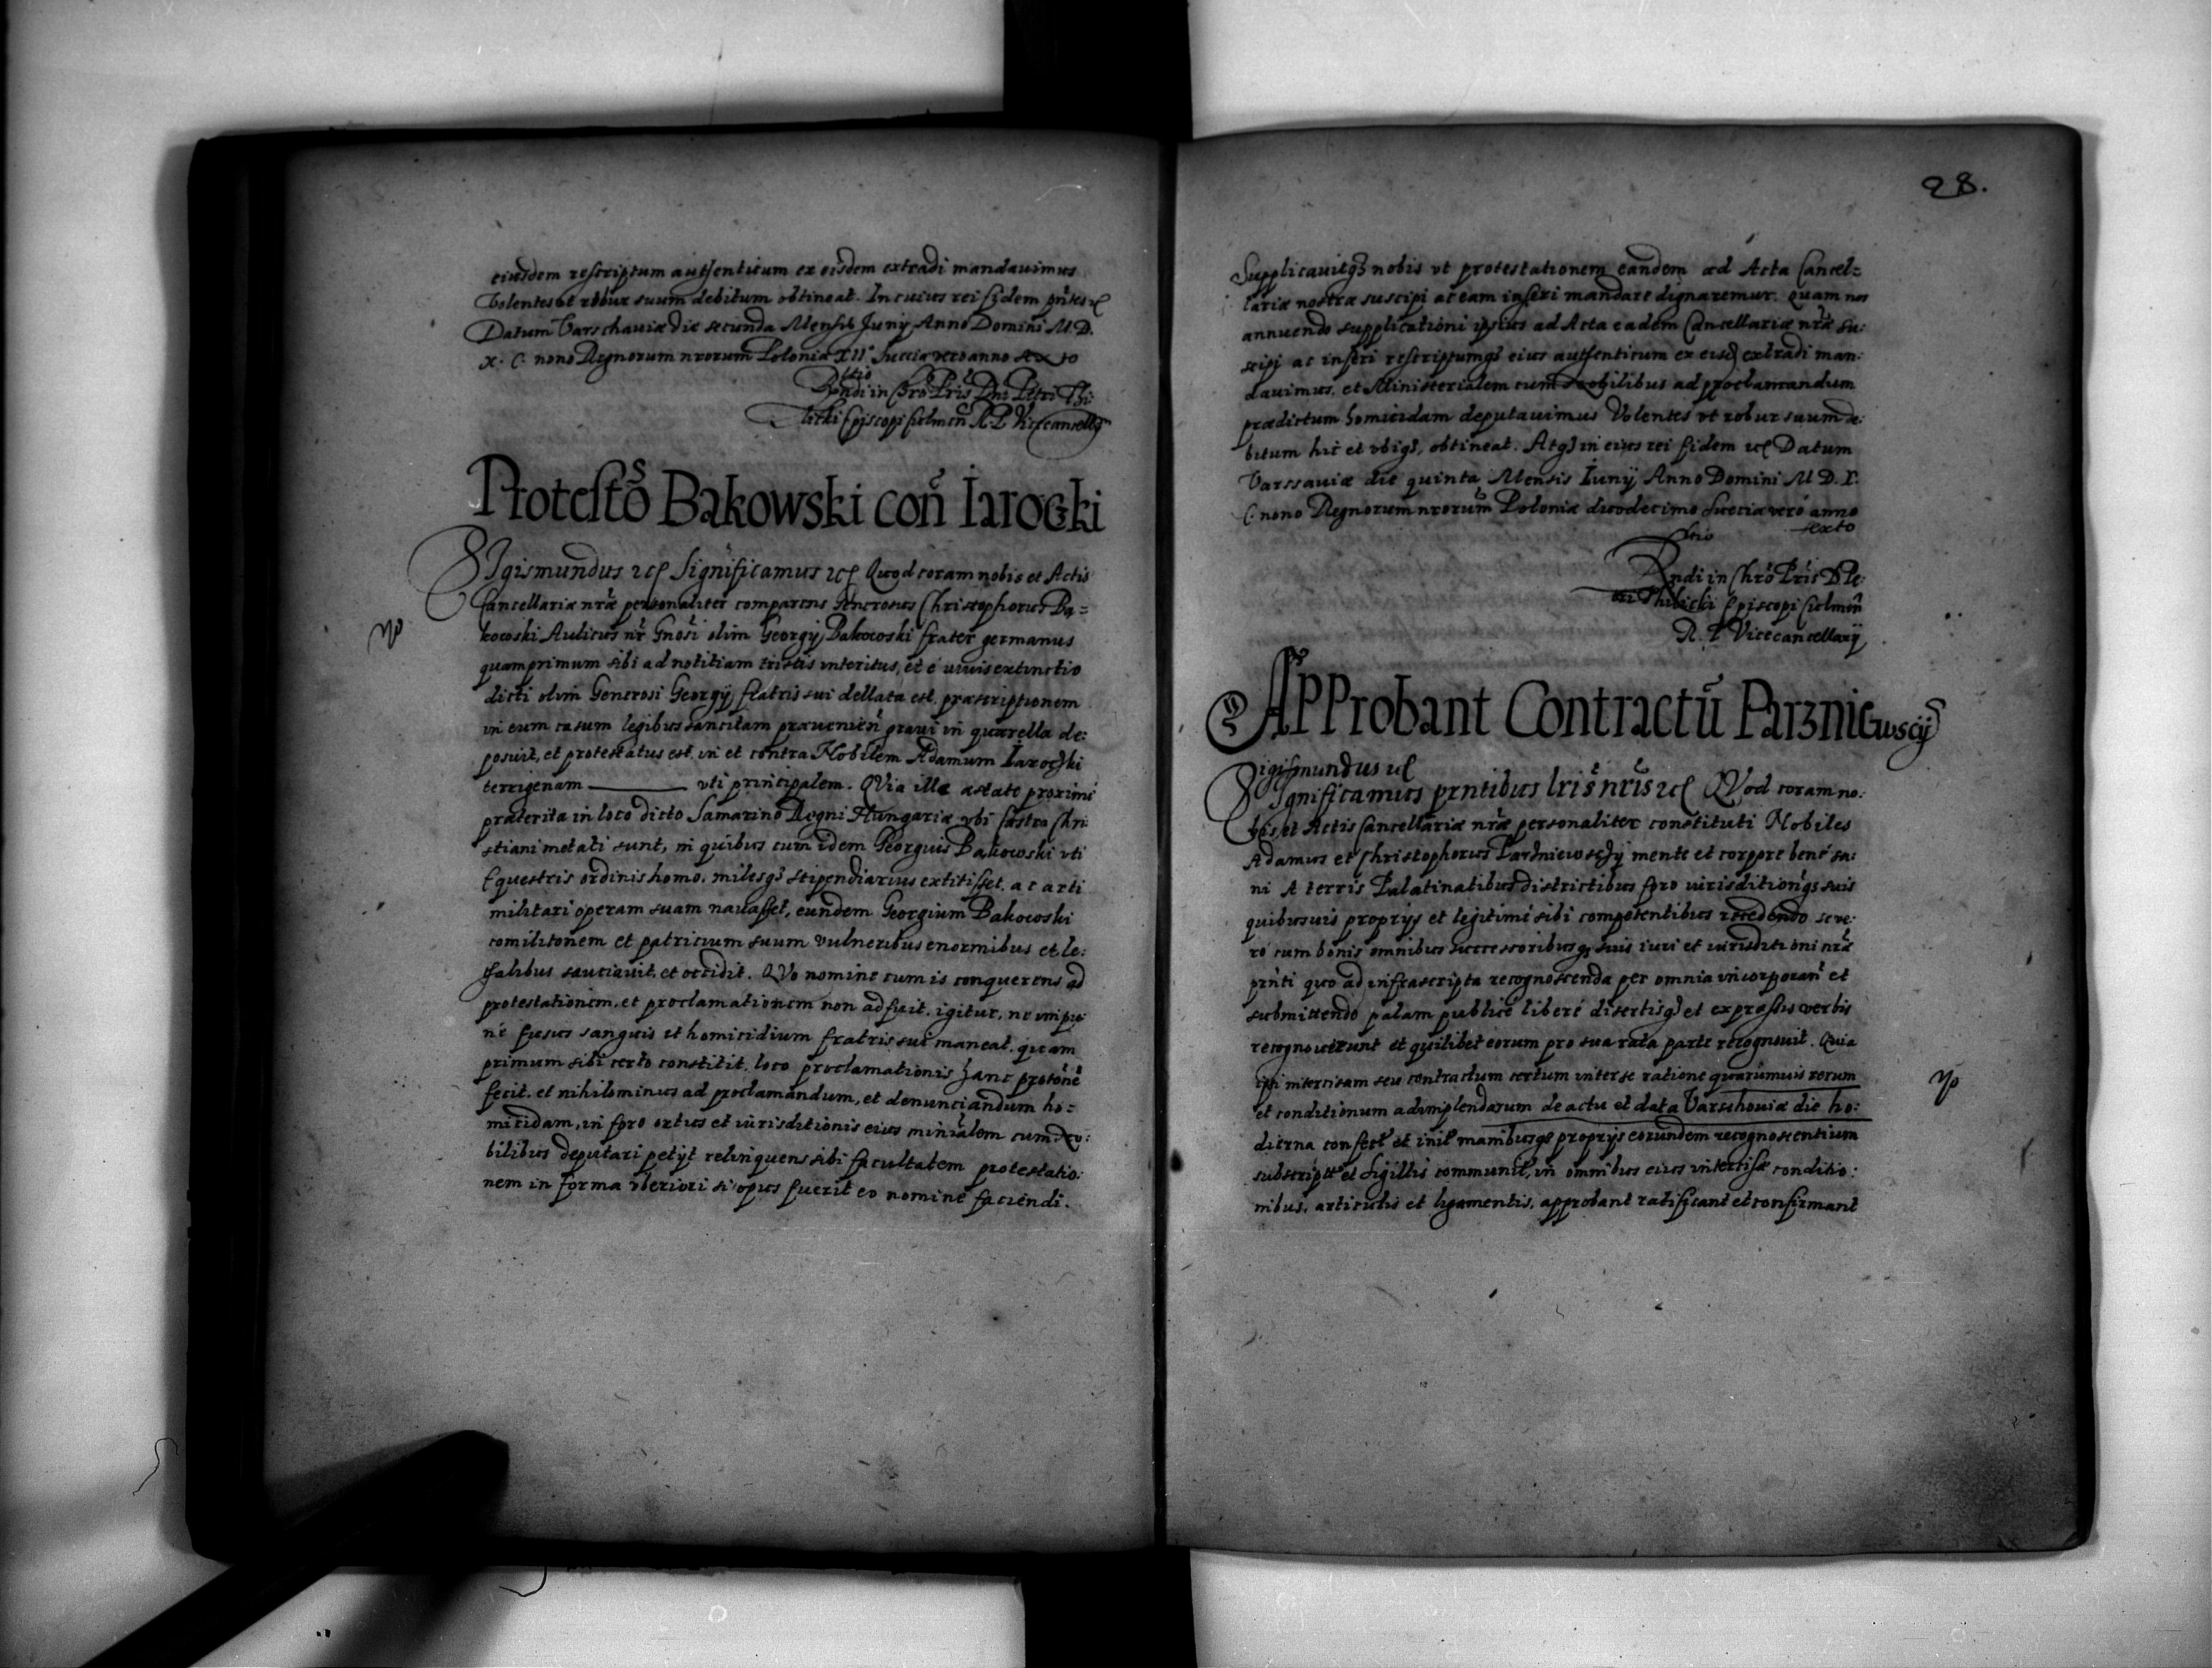 eiusdem rescriptum authenticum ex eisdem extradi mandauimus
Volentes ut robur suum debitum obtineat. In cuius rei fidem pn̄tes etc
Datum Varschauiæ die secunda Mensis Juny Anno Domini M. D.
X. C. nono Regnorum nrorum Poloniæ XII Sueciæ vero anno sexto
R̃ndi in Chr̃o Pris Dni Petri Thi:
licki Episcopi Culmeñ R. P. Vicecancellarij
Protestõ Bakowski coñ Jaroczki
SIgismundus etc Significamus etc Quod coram nobis et Actis
Cancellariæ nr̃æ personaliter comparens Generosus Christophorus Ba=
kowski Aulicus nr̃ Gnosi olim Georgij Bakowski frater germanus
quamprimum sibi ad notitiam tristis interitus, et é uiuis extinctio
dicti olim Generosi Georgij fratris sui dellata est, præscriptionem
in eum casum legibus sancitam præuenień graui in quærella de:
posuit, et protestatus est in et contra Nobilem Adamum Jaroczki
terrigenam ——— vti principalem. QVia ille æstate proximé
præterita in loco dicto Samarino Regni Hungariæ vbi Castra Chri:
stiani metati sunt, in quibus cum idem Georgius Bakowski vti
Equestris ordinis homo, milesq̃ stipendiarius extitisset, ac arti
militari operam suam nauasset, eundem Georgium Bakowski
comilitonem et patricium suum vulneribus enormibus et le:
thalibus sauciauit et occidit. QVo nomine cum is conquerens ad
protestationem, et proclamationem non adfuit, igitur, ne impu
né fusus sanguis et homicidium fratris sui maneat, quam
primum sibi certo constitit, loco proclamationis hanc protonẽ
fecit, et nihilominus ad proclamandum, et denunciandum ho=
micidam, in foro ortus et iurisditionis eius minialem cum No:
bilibus deputari petijt relinquens sibi facultatem protestatio:
nem in forma vberiori si opus fuerit eo nomine faciendi.
28.
Supplicauitq̃ nobis vt protestationem eandem ad Acta Cancel=
lariæ nostræ suscipi ac eam inseri mandare dignaremur. Quam nos
annuendo supplicationi ipsius ad Acta eadem Cancellariæ nr̃æ su:
scipi ac inseri rescriptumq̃ eius authenticum ex eisd extradi man:
dauimus, et Ministerialem cum Nobilibus ad proclamandum
prædictum homicidam deputauimus Volentes vt robur suum de:
bitum hic et vbiq̃, obtineat. Atq̃ in eius rei fidem etc Datum
Varssauiæ die quinta Mensis Iunij Anno Domini M D. X.
C. nono Regnorum nrorum Poloniæ duodecimo Sueciæ veró anno
sexto
R̃ndi in Chrõ Pris D Pe:
tri Thilicki Episcopi Culmeñ
R. P. Vicecancellarij
APProbant Contractũ Parzniewscij
Sigismundus etc
Significamus prntibus lris nris etc QVod coram no:
bis et Actis Cancellariæ nr̃æ personaliter constituti Nobiles
Adamus et Christophorus Parzniewscÿ mente et corpore bené sa:
ni A terris Palatinatibus districtibus foro iurisdition̄q̃ suis
quibusuis proprijs et legitimé sibi competentibus recedendo se ve:
ró cum bonis omnibus successoribusq̃ suis iuri et iurisditioni nr̃æ
prn̄ti quo ad infrascripta recognoscenda per omnia incorporañ et
submittendo palam publicé liberé disertisq̃ et expressis verbis
recognouerunt et quilibet eorum pro sua rata parte recognouit. Quia
ipsi intercisam seu contractum certum inter se ratione quarumuis rerum
et conditionum adimplendarum de actu et data Varschouiæ die ho:
dierna confect̃ et init̃ manibusq̃ proprijs eorundem recognoscentium
subscript̃ et Sigillis communit̃, in omnibus eius intercisæ conditio:
nibus, articulis et ligamentis, approbant ratificant et confirmant